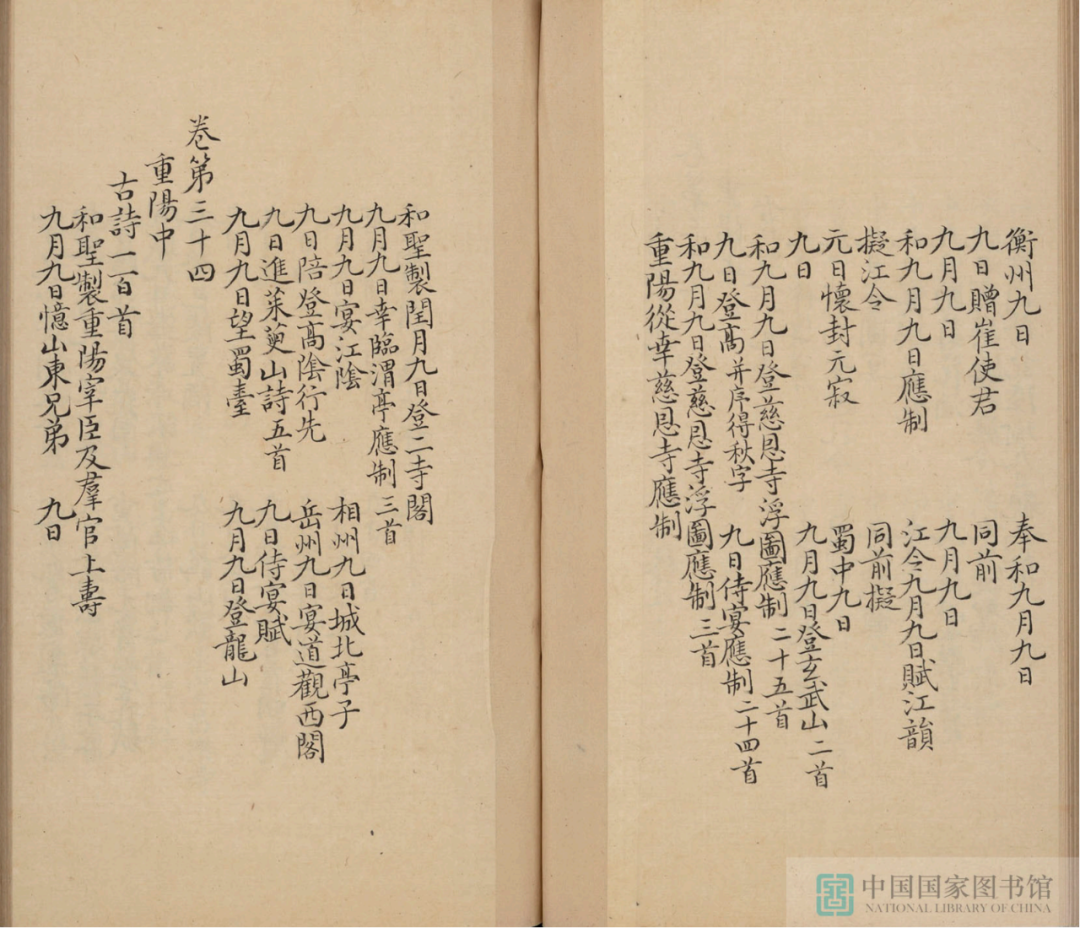 衡州九日　奉和九月九日
九日贈崔使君　同前
九月九日　九月九日
和九月九日應制　江令九月九日賦江韻
擬江令　同前擬
元日懷封元寂　蜀中九日
九日　九月九日登玄武山二首
和九月九日登慈恩寺浮圖應制二十五首
九日登高并序得秋字　九日侍宴應制二十四首
和九月九日登慈恩寺浮圖應制三首
重陽從幸慈恩寺應制
和聖製閏月九日登二寺閣
九月九日幸臨渭亭應制三首
九月九日宴江陰　相州九日城北亭子
九日陪登高陰行先　岳州九日宴道觀西閣
九日進茱萸山詩五首　九日侍宴賦
九月九日望蜀臺　九月九日登龍山
卷第三十四
重陽中
古詩一百首
和聖製重陽宰臣及羣官上壽
九月九日憶山東兄弟　九日
中国国家图书馆
NATIONAL LIBRARY OF CHINA